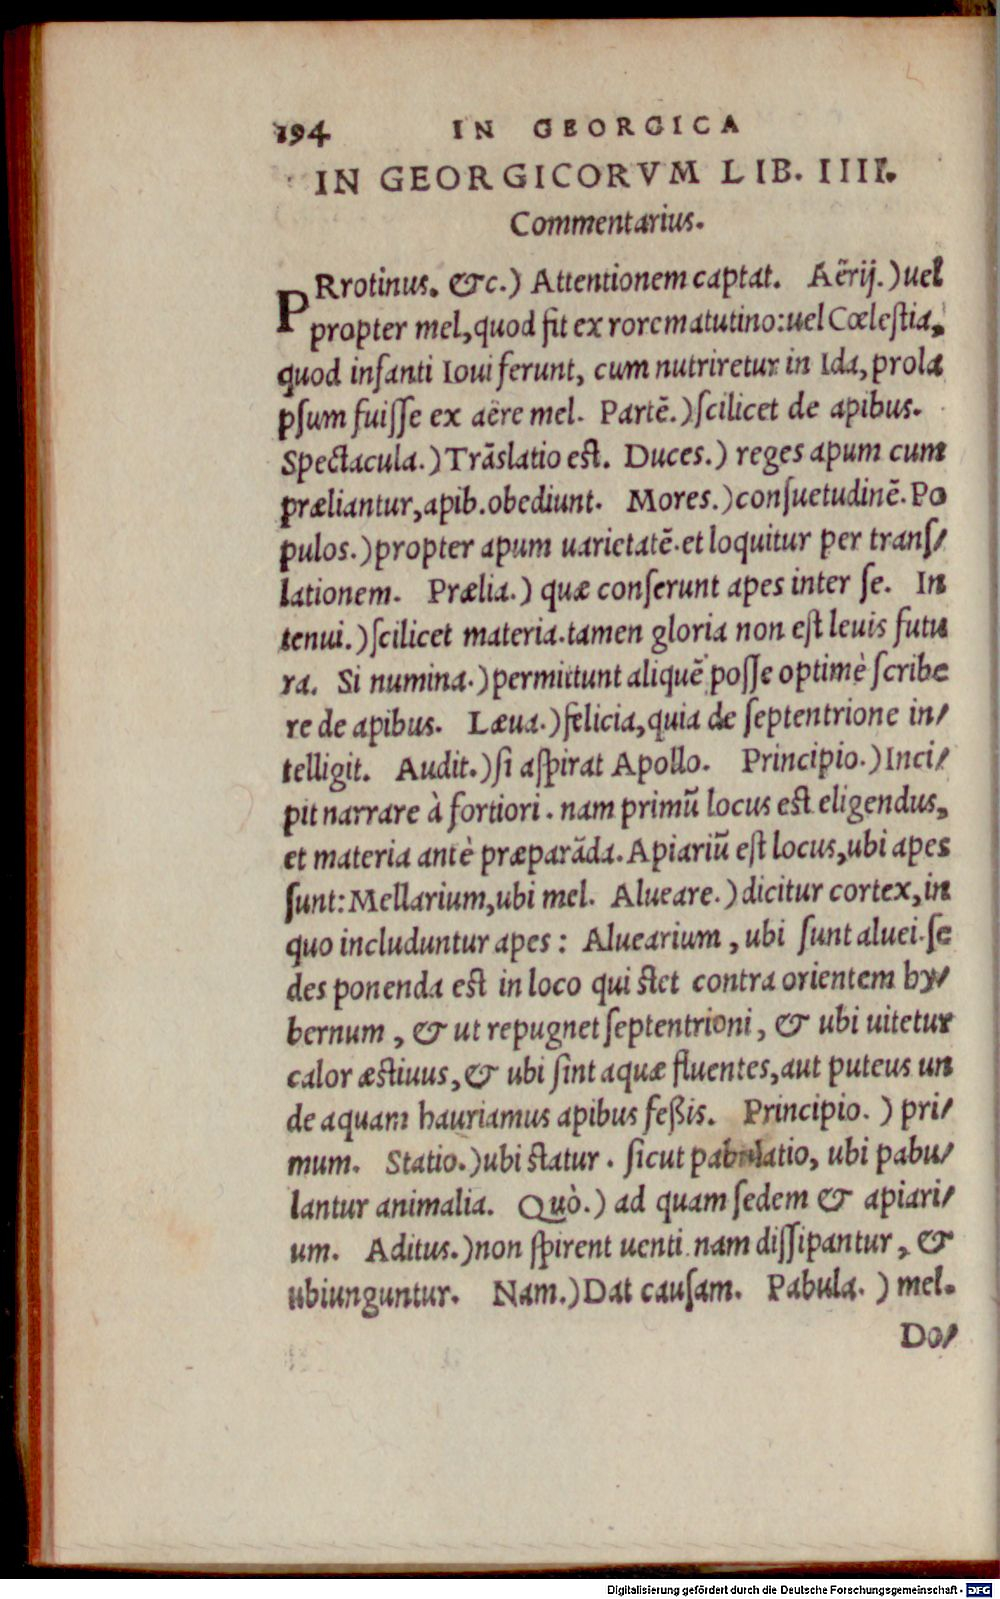 194 IN GEORGICA
IN GEORGICORVM LIB. IIII.
Commentarius.
PRrotinus. &c.) Attentionem captat. Aërij.) uel
propter mel, quod fit ex rore matutino: uel Cœlestia,
quod infanti Ioui ferunt, cum nutriretur in Ida, prola
psum fuisse ex aëre mel. Partẽ.) scilicet de apibus.
Spectacula.) Trãslatio est. Duces.) reges apum cum
præliantur, apib. obediunt. Mores.) consuetudinẽ. Po
pulos.) propter apum uarietatẽ. et loquitur per trans/
lationem. Prælia.) quæ conserunt apes inter se. In
tenui.) scilicet materia. tamen gloria non est leuis futu
ra. Si numina.) permittunt aliquẽ posse optimè scribe
re de apibus. Læua.) felicia, quia de septentrione in/
telligit. Audit.) si aspirat Apollo. Principio.) Inci/
pit narrare à fortiori. nam primũ locus est eligendus,
et materia antè præparãda. Apiariũ est locus, ubi apes
sunt: Mellarium, ubi mel. Alueare.) dicitur cortex, in
quo includuntur apes: Aluearium, ubi sunt aluei. se
des ponenda est in loco qui stet contra orientem hy/
bernum, & ut repugnet septentrioni, & ubi uitetur
calor æstiuus, & ubi sint aquæ fluentes, aut puteus un
de aquam hauriamus apibus feßis. Principio.) pri/
mum. Statio.) ubi statur. sicut pabulatio, ubi pabu/
lantur animalia. Quò.) ad quam sedem & apiari/
um. Aditus.) non spirent uenti. nam dissipantur, &
ubiunguntur. Nam.) Dat causam. Pabula.) mel.
Do/
Digitalisierung gefördert durch die Deutsche Forschungsgemeinschaft - DFG